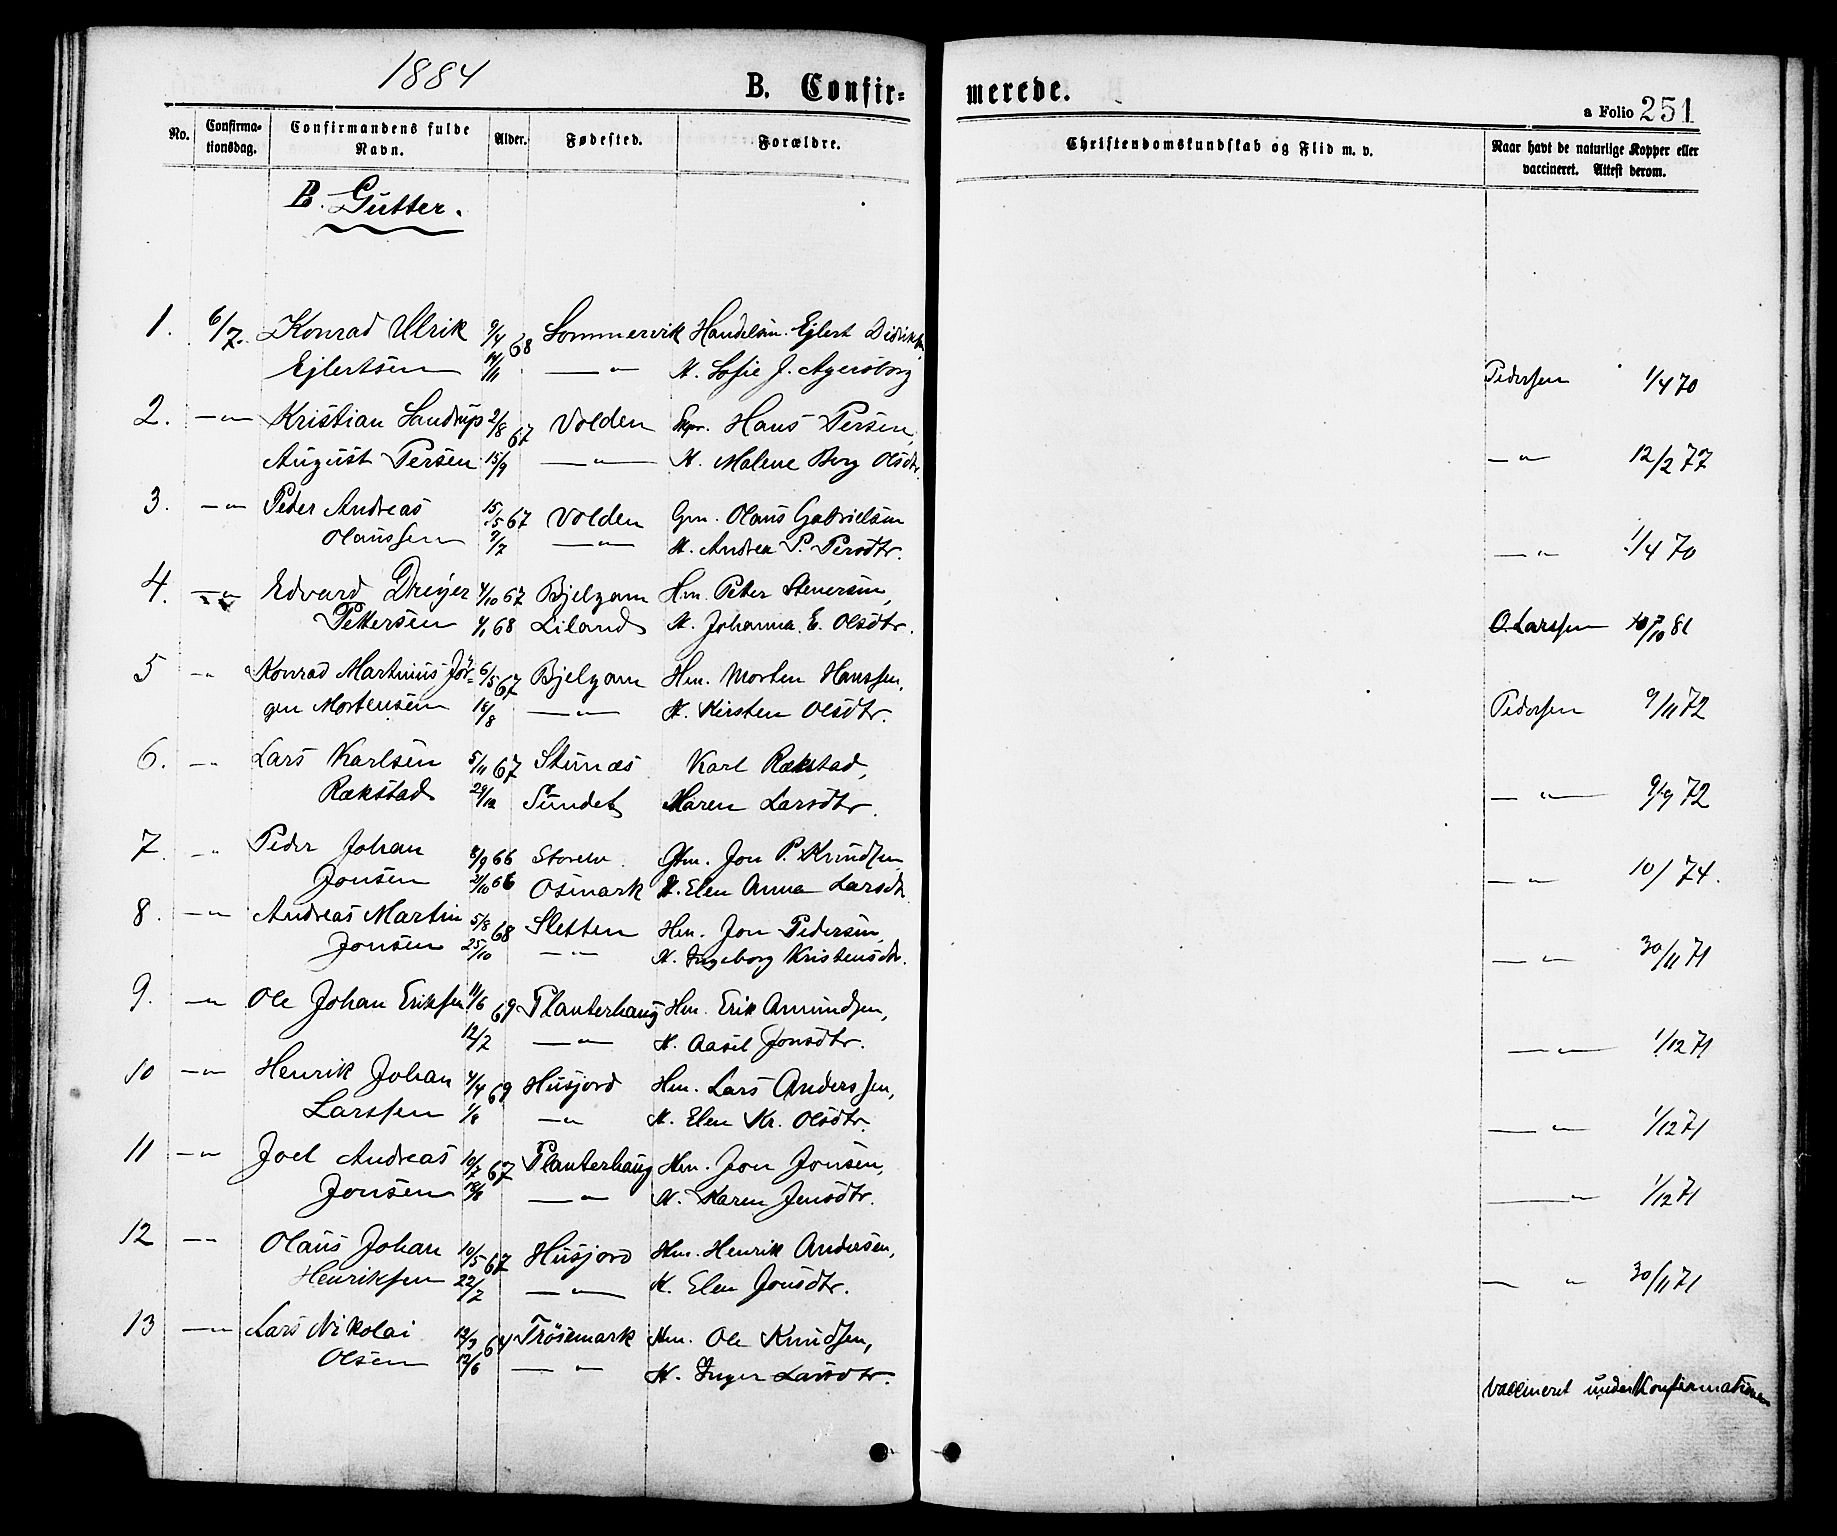 1884
B. Confir=
merede.
a Folio 251
No.
Confirma-
tionsdag.
Confirmandens fulde
Navn.
Alder.
Fødested.
Forældre.
Christendomskundskab og Flid m. v.
Naar havt de naturlige Kopper eller
vaccineret. Attest derom.
B. Gutter.
1. 6/7. Konrad Ulrik 9/4 68 Sommervik Handelsm. Ejlert Didriksen
Ejlertsen 14/11 — " — K. Sofie J. Agersborg Pedersen 1/4 70
2. —"— Kristian Sandrup 2/8 67 Volden Hans Persen,
August Persen 15/9 — " — K. Malene Berg Olsdtr. —"— 12/2 77
3. —"— Peder Andreas 15/5 67 Volden Gm. Olaus Gabrielsen
Olaussen 7/7 — " — K. Andrea P. Persdtr. — " — 1/4 70
4. —"— Edvard Dreyer 4/10 67 Bjelgam Hm. Peter Stenersen,
Pettersen 4/1 68 Liland K. Johanna E. Olsdtr. O. Larssen /10 81
5 " Konrad Martinius Jör- 6/5 67 Bjelgam Hm. Morten Hanssen,
gen Mortensen 18/8 — " — K. Kirsten Olsdtr. Pedersen 9/11 72
6. —" Lars Karlsen 5/11 67 Stunæs Karl Rækstad,
Rækstad 29/12 Sundet Maren Larsdtr. — " — 9/9 72
7. —" Peder Johan 8/9 66 Storelv Gm. Jon P. Knudsen
Jonsen 21/10 66 Osmark K. Elen Anna Larsdtr — " — 10/ 74.
8. —"— Andreas Martin 5/8 68 Sletten Hm. Jon Pedersen,
Jonsen 25/10 — " — K. Ingeborg Kristensdtr. — " — 30/11 71
9. —"— Ole Johan Eriksen 11/6 69 Planterhaug Hm. Erik Amundsen,
12/2 — " — K. Aasel Jonsdtr. — " — 1/12 71
10 —"— Henrik Johan 4/4 69 Husjord Hm. Lars Anderssen,
Larssen 1/8 — " — K. Elen Kr. Olsdtr. — " — 1/12 71
11 —"— Joel Andreas 10/7 67 Planterhaug Hm. Jon Jonsen,
Jonsen 18/8 — " — K. Karen Jensdtr. — " — 1/12 71
12 —"— Olaus Johan 10/5 67 Husjord Hm. Henrik Andersen,
Henriksen 22/7 — " — K. Elen Jonsdtr. — " 30/11 71
13 —"— Lars Nikolai 12/3 64 Trösemark Hm. Ole Knudsen,
Olsen 12/6 — " — K. Inger Larsdtr. Vaccineret under Konfirmationen